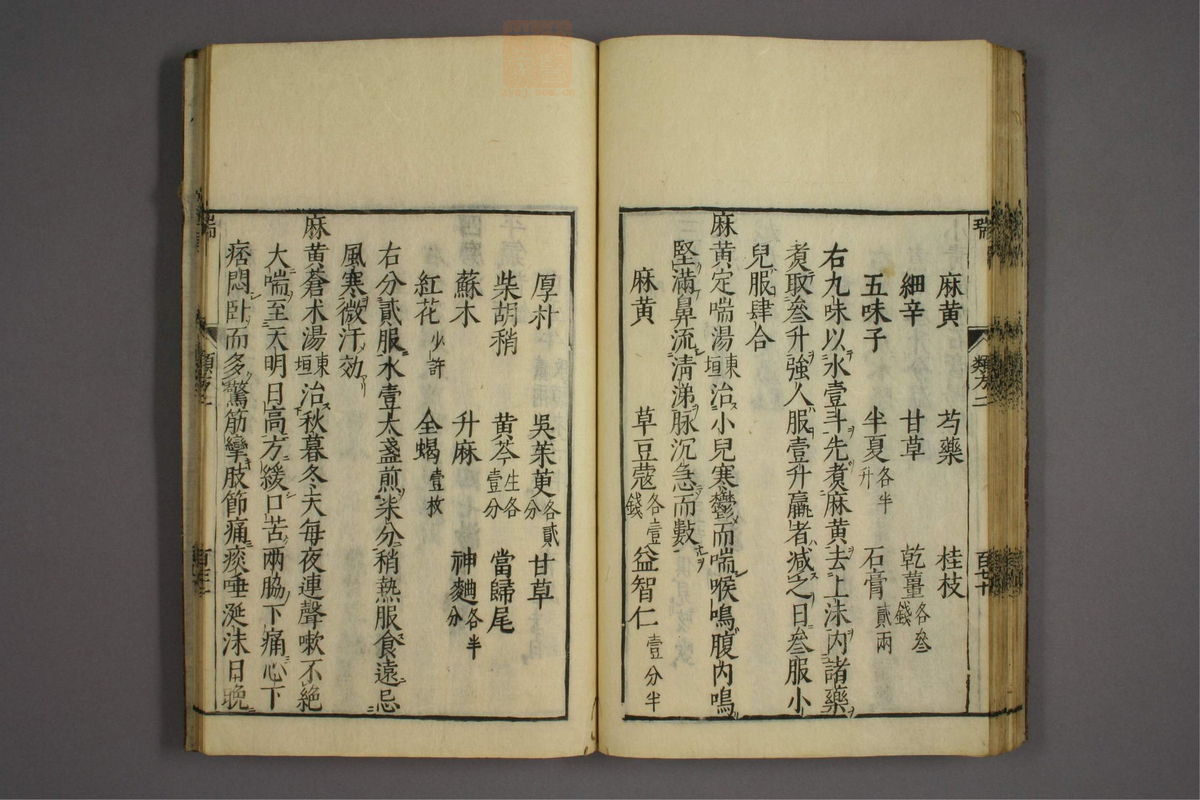 麻黄 芍藥 桂枝
細辛 甘草 乾薑各叁錢
五味子 半夏各半升 石膏貳兩
右九味以水壹斗先煑麻黄去上沫内諸藥
煑取叁升強人服壹升羸者减之日叁服小
兒服肆合
麻黄定喘湯東垣治小兒寒鬱而喘喉鳴腹内鳴
堅滿鼻流清涕脉沉急而數
麻黄 草豆蔻各壹錢 益智仁壹分半
厚朴 吳茱萸各貳分 甘草
柴胡稍 黄芩生各壹分 當歸尾
蘇木 升麻 神麯各半分
紅花少許 全蝎壹枚
右分貳服水壹大盞煎柒分稍熱服食遠忌
風寒微汗効
麻黄蒼术湯東垣治秋暮冬天每夜連聲嗽不絶
大喘至天明日高方緩口苦兩脇下痛心下
痞悶卧而多驚筋攣肢節痛痰唾涎沫日晚